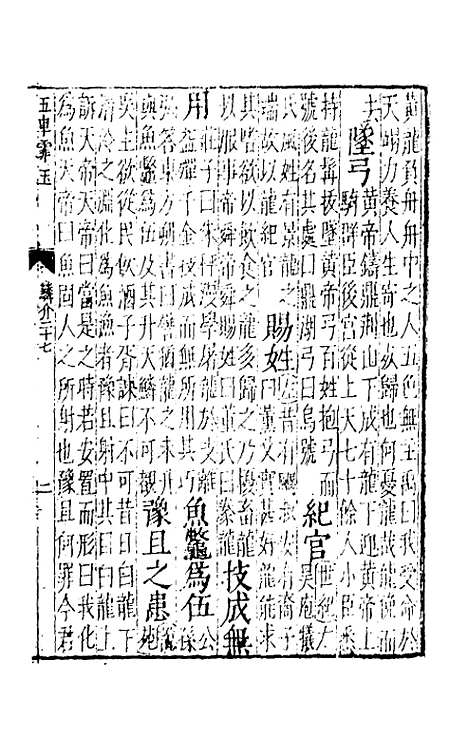 黃龍負舟舟中之人五色無主禹曰我受命於
天竭力養人生寄也死歸也何憂龍哉龍俛而
去 墜弓 黃帝鑄鼎荆山下成有龍下迎黃帝上
騎群臣後宮從上天七十餘人小臣悉
持龍髯拔墜黃帝弓百姓抱弓而
號後名其處曰鼎湖弓曰烏號 紀官 世紀太
昊庖犧
氏風姓有景龍之
瑞故以龍紀官 賜姓 左昔有飂叔安有裔子
曰董父實甚好龍能求
其嗜欲以飲食之龍多歸之乃擾畜龍
以服事帝舜帝舜賜姓曰董氏曰豢龍 技成無
用 莊子曰朱泙漫學屠龍於支離
益殫千金技成而無所用其巧 魚鱉為伍 公孫
弘答東方朔書曰譬猶龍之未升
與魚鱉為伍及其升天鱗不可覩 豫且之患
吳王欲從民飲酒子胥諫曰不可昔白龍下
清泠之淵化為魚漁者豫且射中其目白龍上
訴天帝天帝曰當是之時若安置而形曰我化
為魚天帝曰魚固人之所射也豫且何罪今君
五車霏玉
鱗介二十七
二